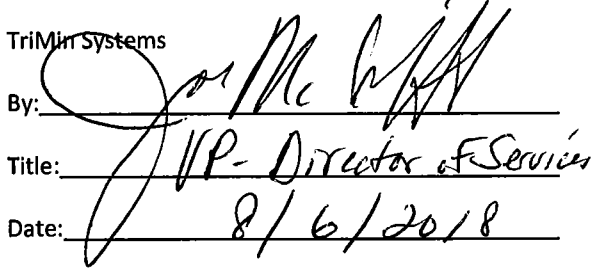 TriMin Systems
By: Joe Mc
Title: VP- Director of Services
Date: 8/6/2018